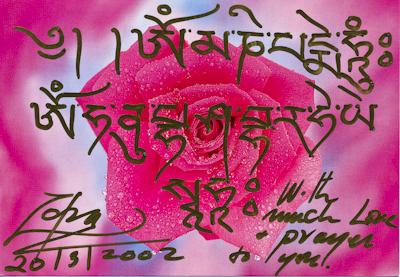 ༄། །ཨོཾ་མ་ཎི་པདྨེ་ཧཱུྃ༔
ཨོཾ་ཧ་ནུ་པྷ་ཤ་བྷ་ར་ཧེ་ཡེ
སྭཱ་ཧཱ༔
Zopa
20/3/2002
With
much Love
prayer
to you.